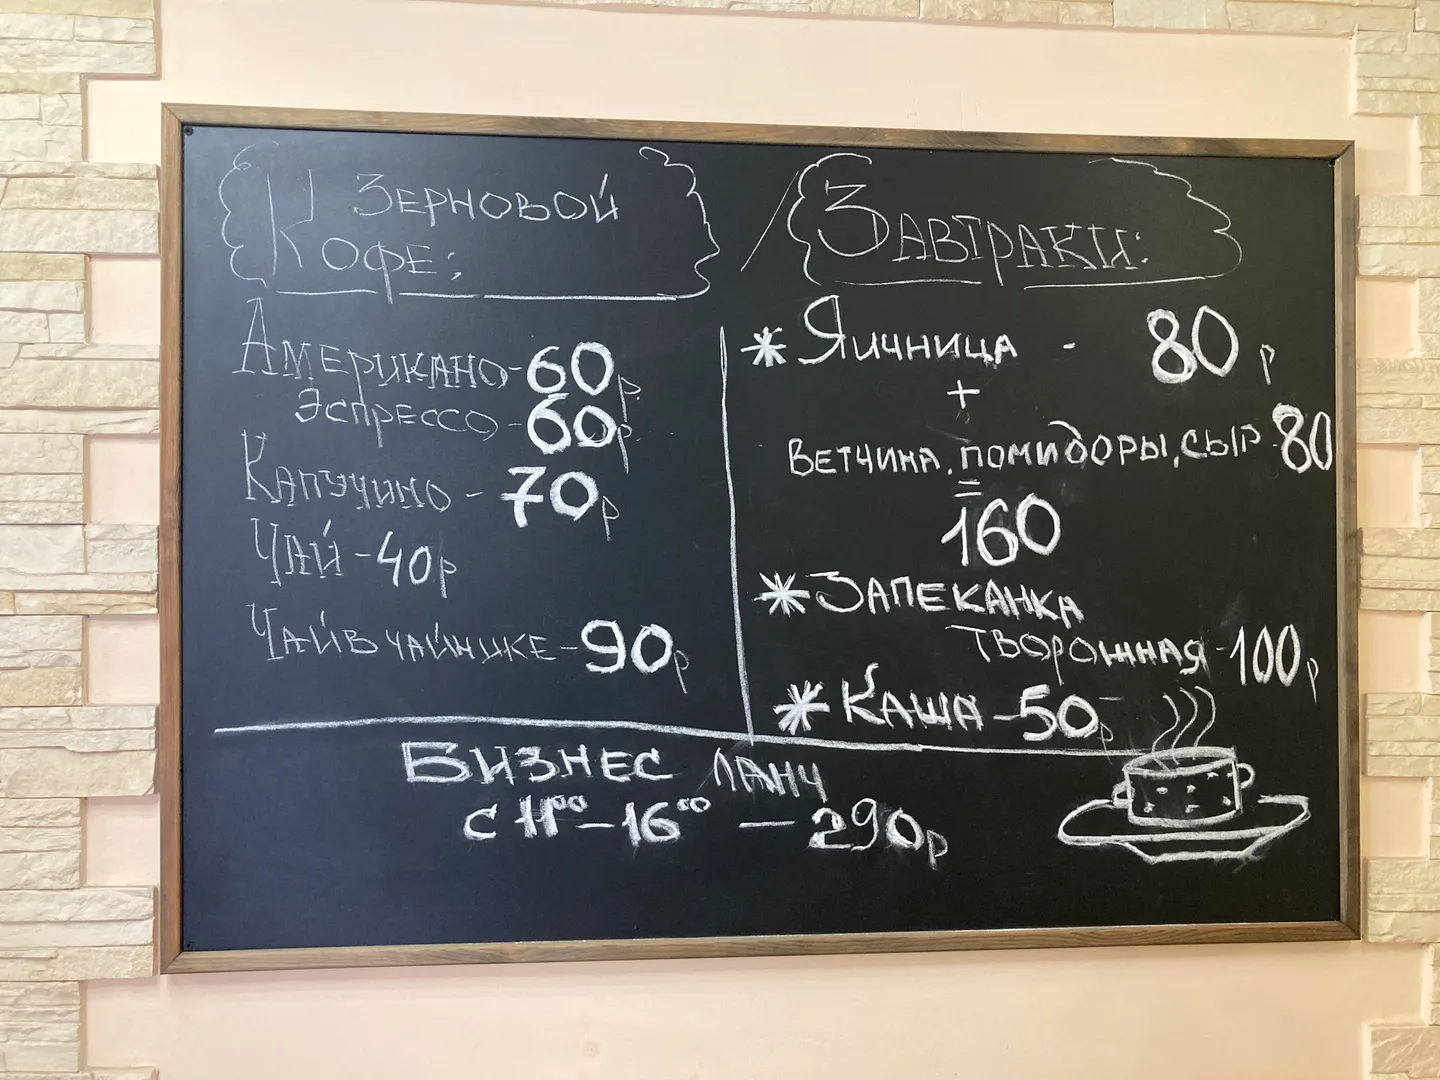 Зерновой
Кофе:
Американо-60р
Эспрессо-60р
Капучино-70р
Чай-40р
Чай в чайнике-90р
Завтраки:
* Яичница - 80р
+
Ветчина, помидоры, сыр-80
=
160
* Запеканка
творожная-100р
* Каша-50р
Бизнес Ланч
с 11⁰⁰-16⁰⁰ - 290р